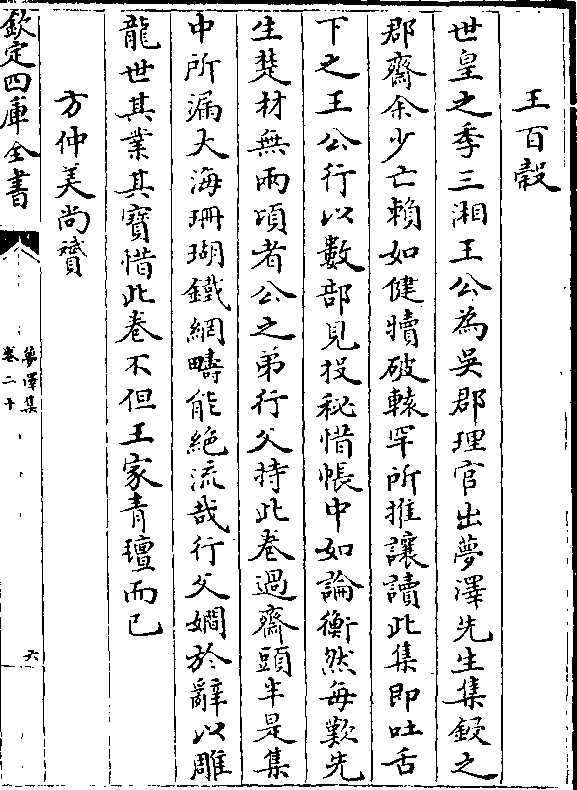 王百穀
世皇之季三湘王公為吳郡理官出夢澤先生集鋟之
郡齋余少亡賴如健犢破轅罕所推讓讀此集即吐舌
下之王公行以數部見投秘惜帳中如論衡然每歎先
生楚材無兩頃者公之弟行父持此卷過齋頭半是集
中所漏大海珊瑚鐵網疇能絶流哉行父嫺於辭以雕
龍世其業其寳惜此卷不但王家青氊而已
方仲美尚贇
欽定四庫全書
夢澤集
卷二十
六